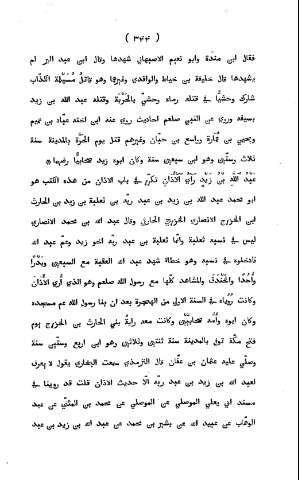 ( ٣٤٤ )
فقال ابن مندة وابو نعيم الاصبهاني شهدها وقال ابن عبد البر لم
يشهدها قال خليفة بن خياط والواقدي وغيرها وهو قاتل مُسَيْلِمَة الكذّاب
شارك وحشيًّا في قتله رماه وحشيّ بالحَرْبة وقتله عبد الله بن زيد
بسيفه وروى عن النبي صلعم احاديث روى عنه ابن اخيه عبّاد بن تميم
ويحيى بن عُمارة وواسع بن حبّان وغيرهم قتل يوم الحَرَّة بالمدينة سنة
ثلاث وستّين وهو ابن سبعين سنة وكان ابوه زيد صحابيًّا رضهما*
عَبْدُ اللَّهِ بْنُ زَيْدٍ رَائِي الأَذَانِ تكرّر في باب الاذان من هذه الكتب هو
ابو محمد عبد الله بن زيد بن عبد ربّه بن ثعلبة بن زيد بن الحارث
ابن الخزرج الانصاري الخزرجي الحارثي وقال عبد الله بن محمد الانصاري
ليس في نسبه ثعلبة وانّما ثعلبة بن عبد ربّه اخو زيد وعمّ عبد الله
فادخلوه في نسبه وهو خطاء شهد عبد الله العقبة مع السبعين وبَدْرًا
وأُحُدًا والخَنْدَق والمشاهد كلّها مع رسول الله صلعم وهو الذي أُرِيَ الأَذَانَ
وكانت رُؤْياه في السنة الاولى من الهجرة بعد ان بنا رسول الله صم مسجده
وكان ابوه وأُمّه صحابيَّيْن وكانت معه راية بني الحارث بن الخزرج يوم
فتح مكّة توفى بالمدينة سنة ثنتين وثلاثين وهو ابن اربع وستّين سنة
وصلّى عليه عثمان بن عفّان قال الترمذي سمعت البخاري يقول لا يعرف
لعبد الله بن زيد بن عبد ربّه الّا حديث الاذان قلت قد روينا في
مسند ابي يعلى الموصلي عن الموصلي عن محمد بن المثنّى عن عبد
الوهّاب عن عبيد الله عن بشير بن محمد عن عبد الله بن زيد بن عبد